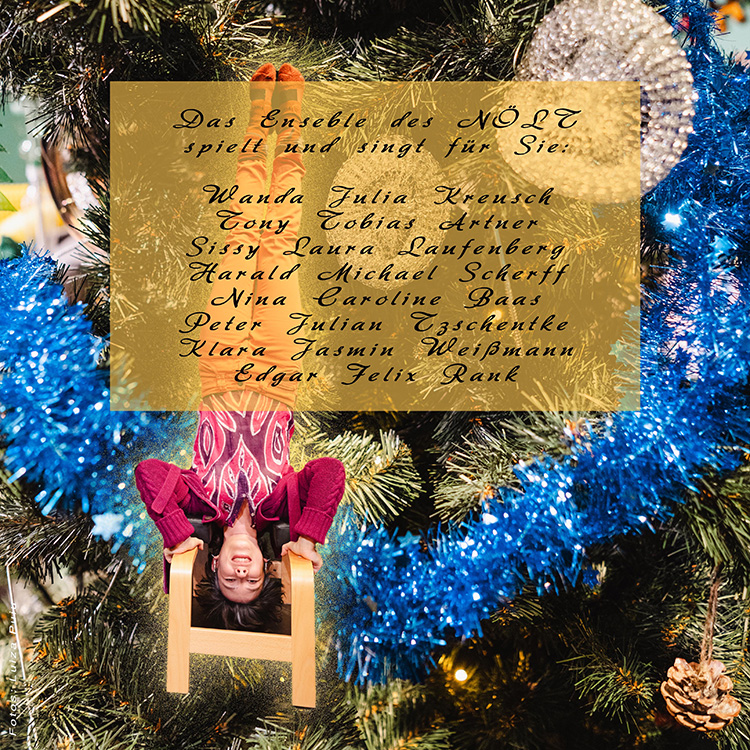 Das Enseble des NÖLT
spielt und singt für Sie:
Wanda Julia Kreusch
Tony Tobias Artner
Sissy Laura Laufenberg
Harald Michael Scherff
Nina Caroline Baas
Peter Julian Tzschentke
Klara Jasmin Weißmann
Edgar Felix Rank